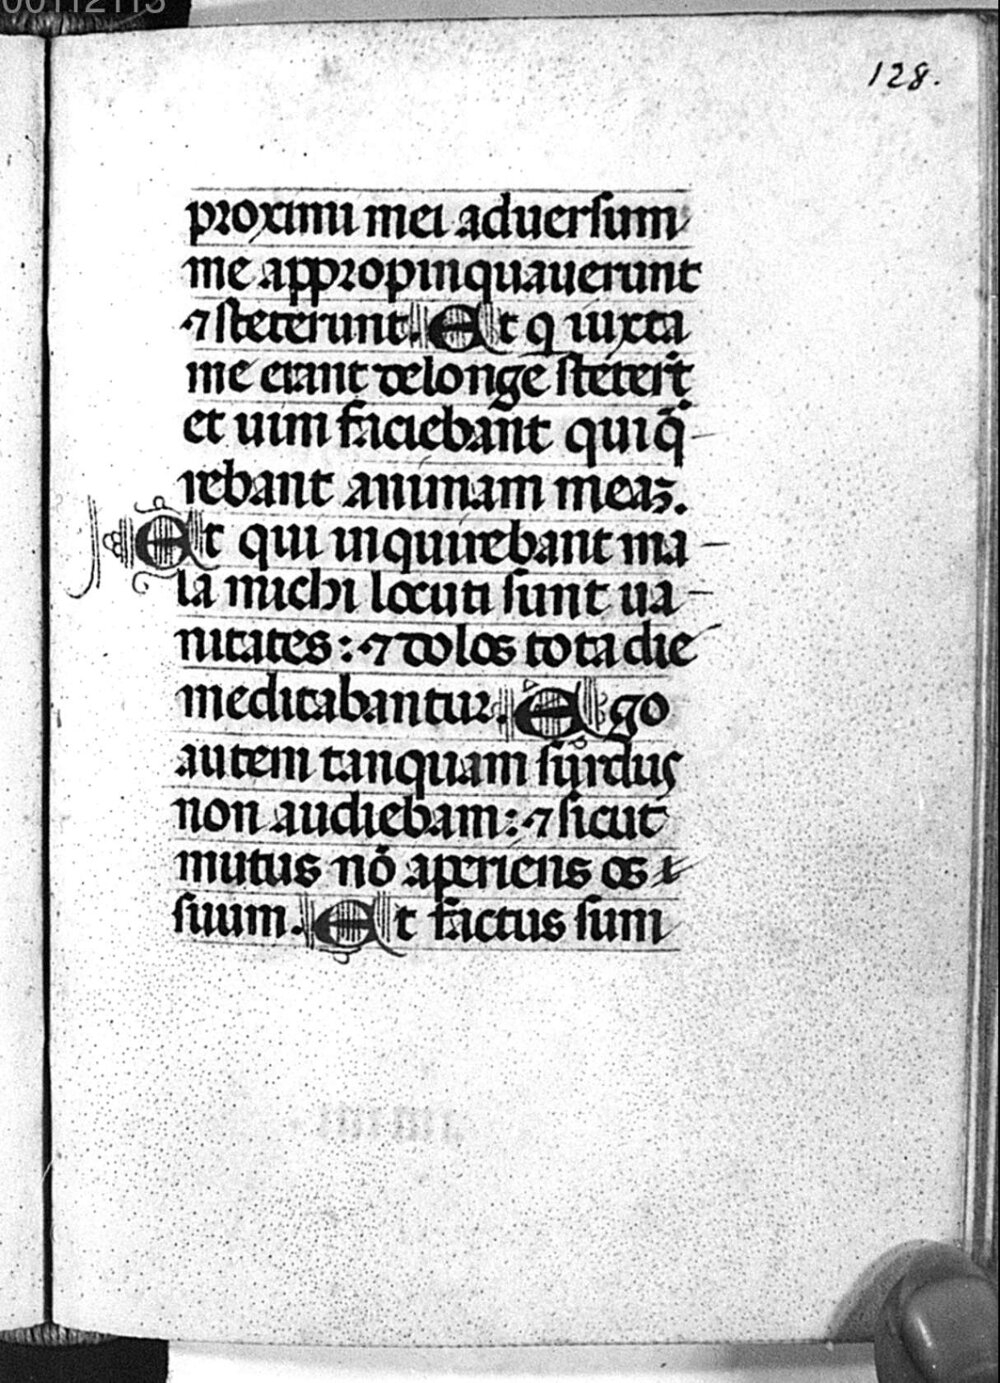 00112113
128.
proximi mei aduersum
me appropinquauerunt
⁊ steterunt. Et q iuxta
me erant de longe steter̄t
et uim faciebant qui q̄
rebant animam meaꝫ.
Et qui inquirebant ma
la michi locuti sunt ua
nitates : ⁊ dolos tota die
meditabantur. Ego
autem tanquam surdus
non audiebam : ⁊ sicut
mutus nō aperiens os
suum. Et factus sum